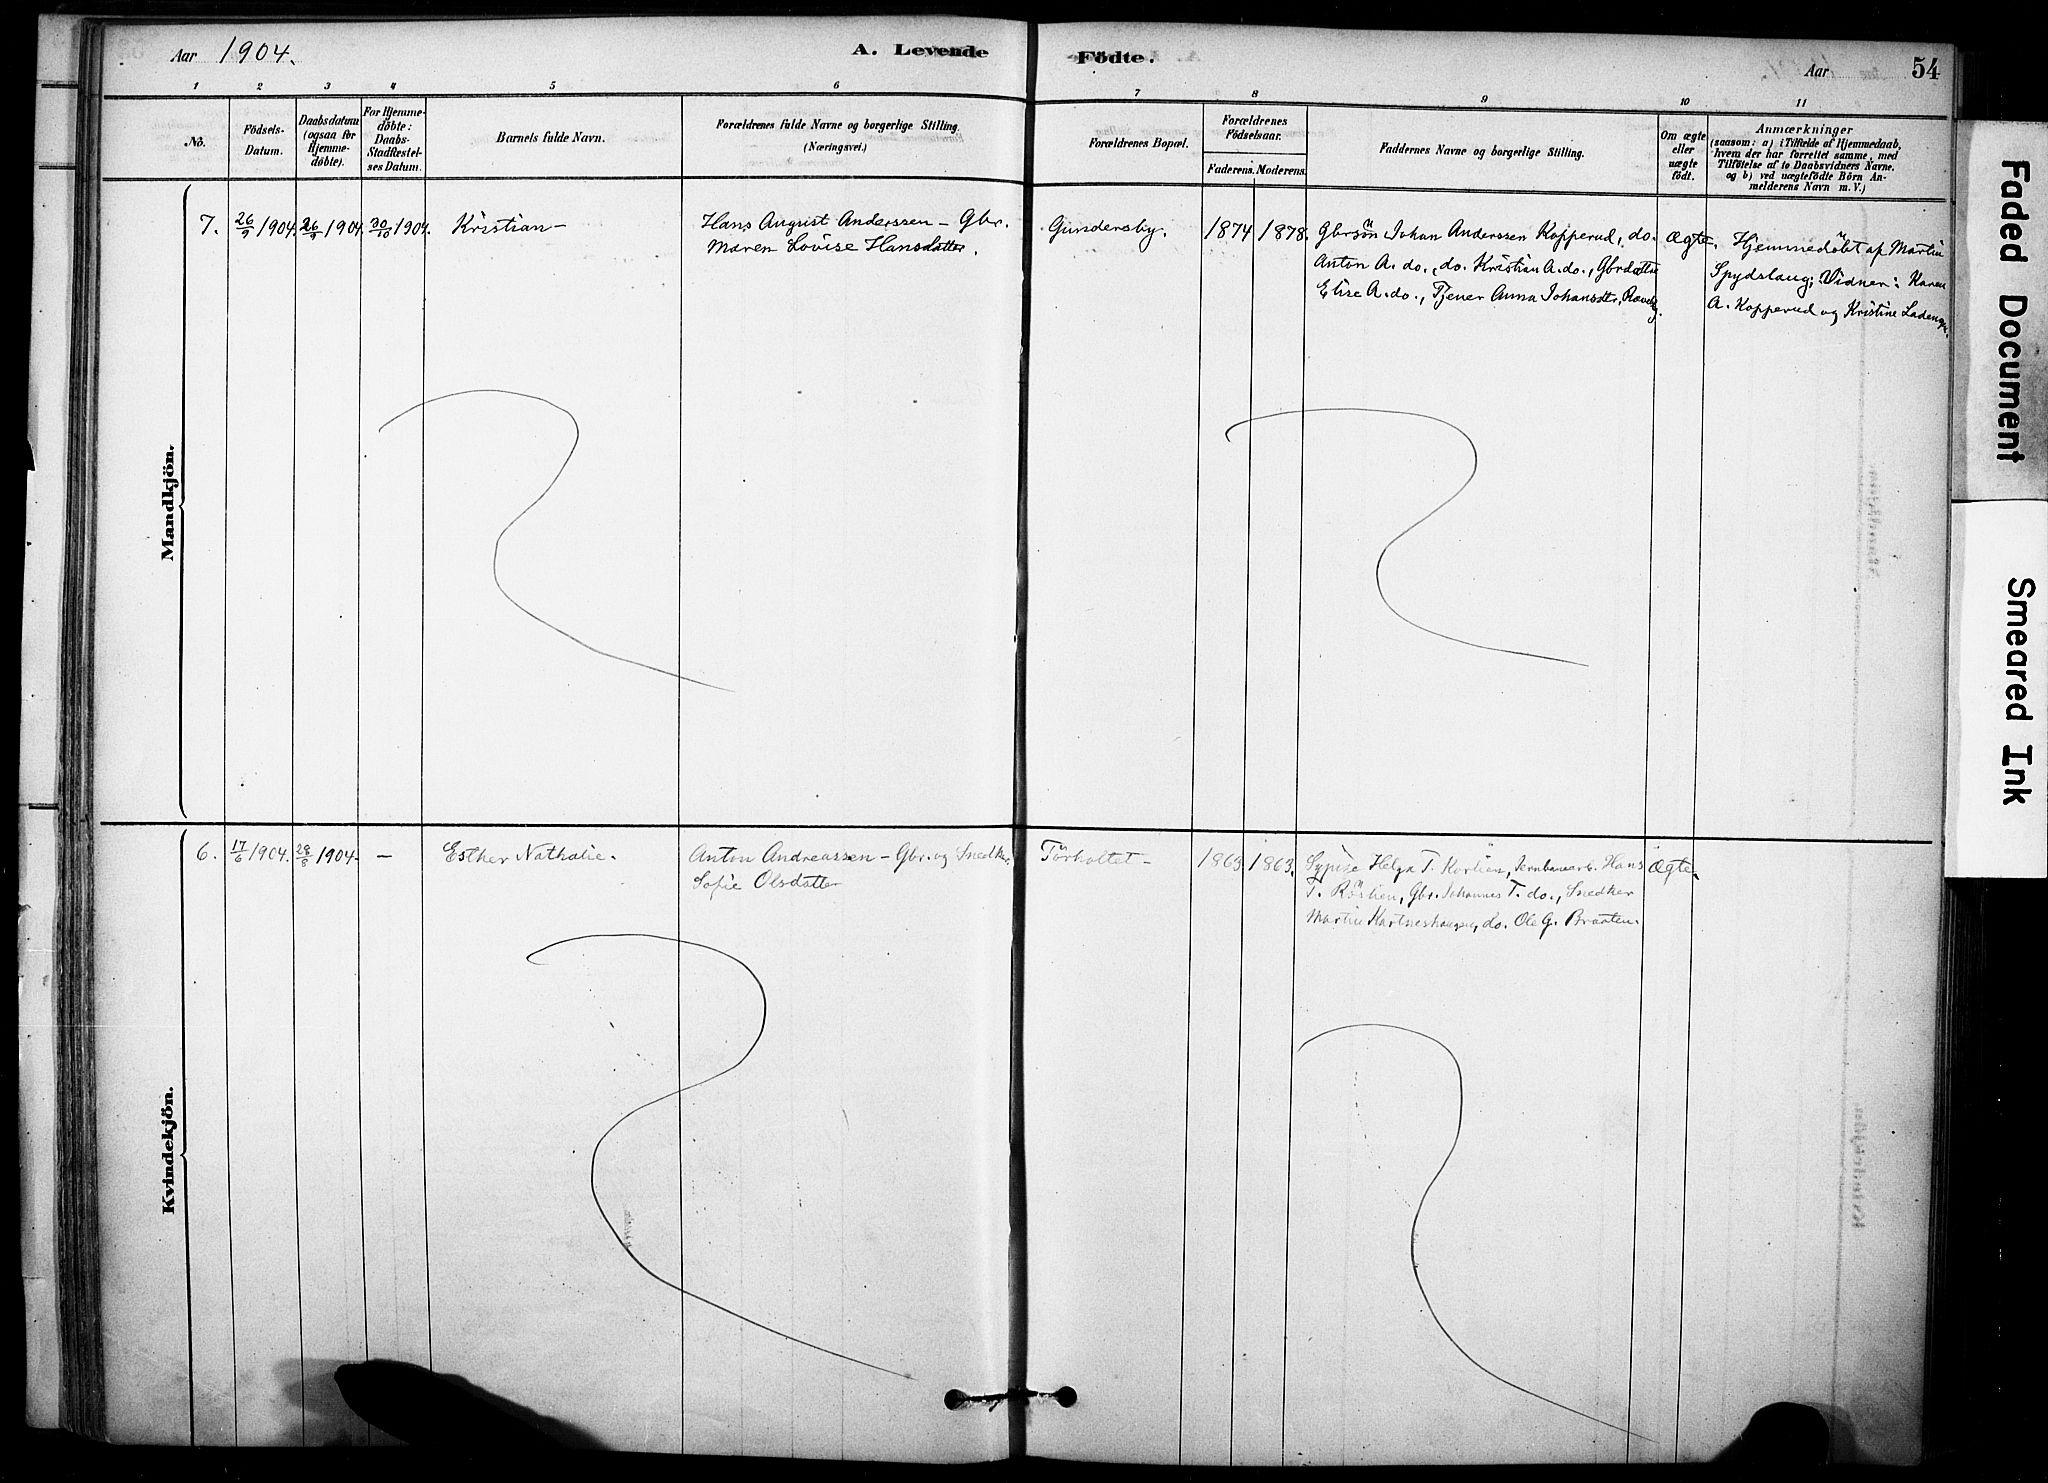 Aar 1904.
A. Levende Födte.
Aar
54
1 2 3 4 5 6 7 8 9 10 11
No.
Födsels-
Datum.
Daabsdatum
(ogsaa for
Hjemme-
döbte).
For Hjemme-
döbte:
Daabs-
Stadfæstel-
ses Datum.
Barnets fulde Navn.
Forældrenes fulde Navne og borgerlige Stilling.
(Næringsvei.)
Forældrenes Bopæl.
Forældrenes
Födselsaar.
Faderens. Moderens.
Faddernes Navne og borgerlige Stilling.
Om ægte
eller
uægte
födt.
Anmærkninger
(saasom: a) i Tilfælde af Hjemmedaab,
hvem der har forrettet samme, med
Tilföielse af to Daabsvidners Navne.
og b) ved uægtefödte Börn An-
melderens Navn m. V.)
Mandkjön.
7. 26/9 1904. 26/9 1904. 30/10 1904. Kristian- Hans August Anderssen - Gbr.
Maren Lovise Hansdatter.
Gundersby. 1874 1878.
Gbrsön Johan Anderssen Kopperud, do.
Anton A. do., do. Kristian A. do., Gbrdatter
Elise A. do., Tjener Anna Johansdtr,
Ægte.
Hjemmedöbt af Martin
Spydslaug; Vidner: Karen
A. Kopperud og Kristine
Kvindekjön.
6. 17/6 1904. 28/8 1904. - Esther Nathalie. Anton Andreassen - Gbr. og Snedker.
Sofie Olsdatter
Törholtet - 1863. 1863.
Sypike Helga T. Jernbanearb. Hans
T. Röstien, Gbr. Johannes T. do., Snedker
Martin do. Ole G. Braaten.
Ægte.
Faded Document
Smeared Ink